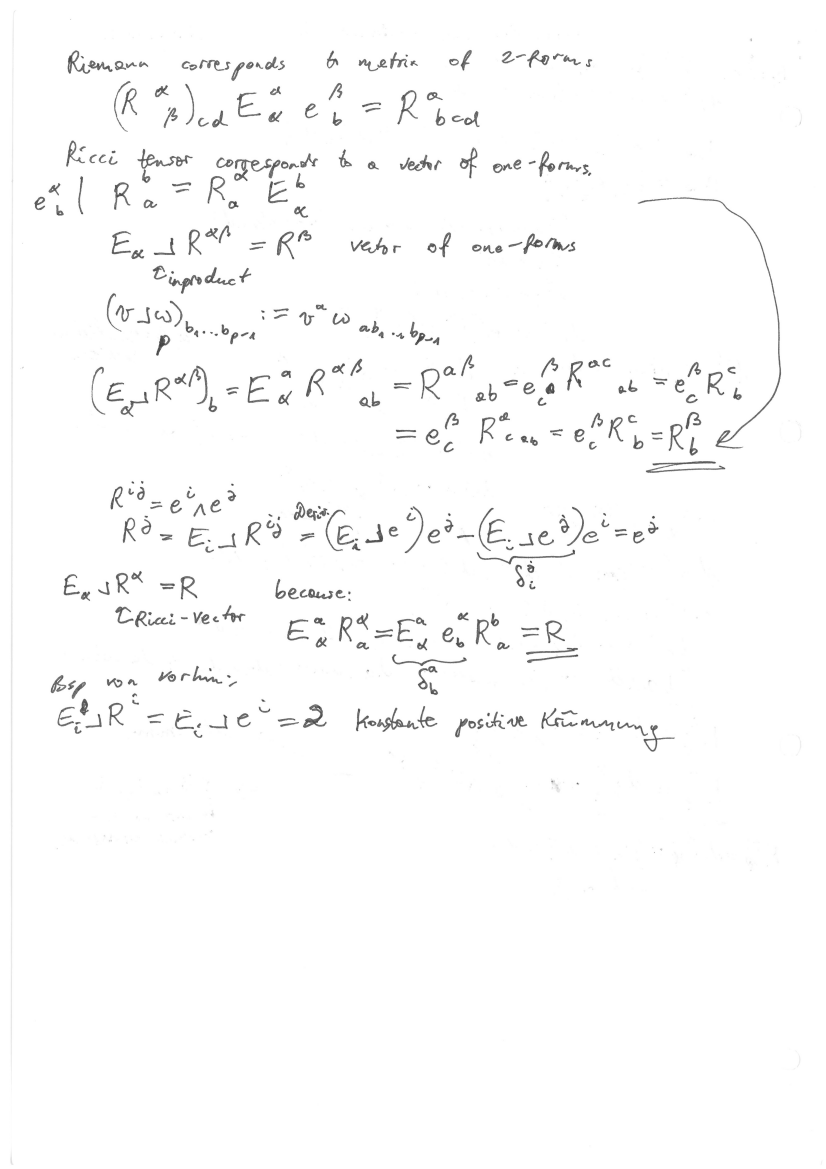 Riemann corresponds to matrix of 2-forms
(R^α_β)_cd E^a_α e^β_b = R^a_bcd
Ricci tensor corresponds to a vector of one-forms.
e^α_b | R^b_a = R^α_a E^b_α
E_α ⌟ R^αβ = R^β vector of one-forms
↑ inproduct
(v ⌟ ω)_b₁...b_p-1 := v^a ω_ab₁...b_p-1
p
(E_α ⌟ R^αβ)_b = E^a_α R^αβ_ab = R^aβ_ab = e^β_c R^ac_ab = e^β_c R^c_b
= e^β_c R^a_c ab = e^β_c R^c_b = R^β_b
R^ij = e^i ∧ e^j
R^j = E_i ⌟ R^ij = (E_i ⌟ e^i) e^j − (E_i ⌟ e^j) e^i = e^j
δ^j_i
E_α ⌟ R^α = R because:
↑ Ricci-Vector
E^a_α R^α_a = E^a_α e^α_b R^b_a = R
δ^a_b
Bsp von vorhin:
E_i ⌟ R^i = E_i ⌟ e^i = 2 Konstante positive Krümmung